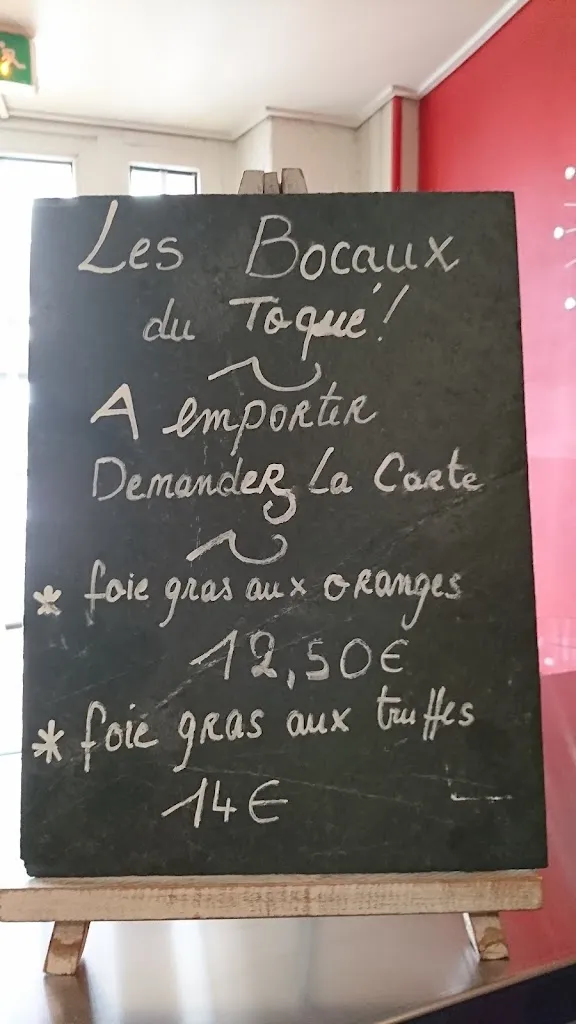 Les Bocaux
du Toqué!
A emporter
Demandez La Carte
* foie gras aux oranges
12,50€
* foie gras aux truffes
14€